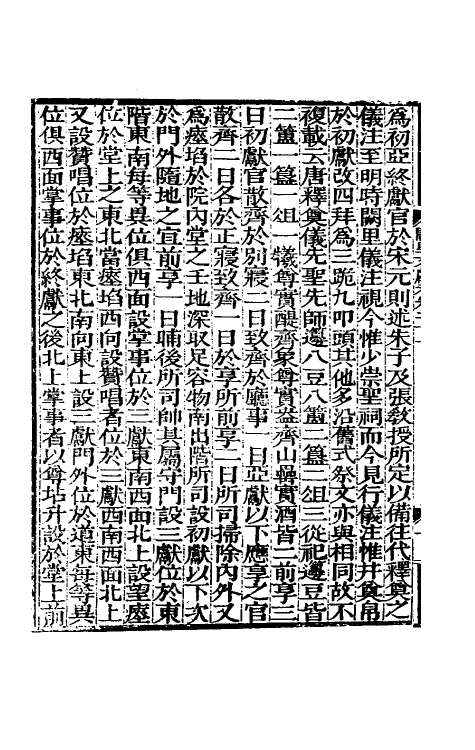 爲初亞終獻官於宋元則述朱子及張敎授所定以備往代釋奠之
儀注至明時闕里儀注視今惟少崇聖祠而今見行儀注惟幷奠帛
於初獻改四拜爲三跪九叩頭其他多沿舊式祭文亦與相同故不
複載云唐釋奠儀先聖先師籩八豆八簋二簠二俎三從祀籩豆皆
二簋一簠一俎一犧尊實醴齊象尊實盎齊山罍實酒皆二前享三
日初獻官散齊於別寢二日致齊於廳事一日亞獻以下應享之官
散齊二日各於正寢致齊一日於享所前享二日所司掃除內外又
爲瘞埳於院內堂之壬地深取足容物南出階所司設初獻以下次
於門外隨地之宜前享一日晡後所司帥其屬守門設三獻位於東
階東南每等異位俱西面設掌事位於三獻東南西面北上設望瘞
位於堂上之東北當瘞埳西向設贊唱者位於三獻西南西面北上
又設贊唱位於瘞埳東北南向東上設三獻門外位於道東每等異
位俱西面掌事位於終獻之後北上掌事者以尊坫升設於堂上前